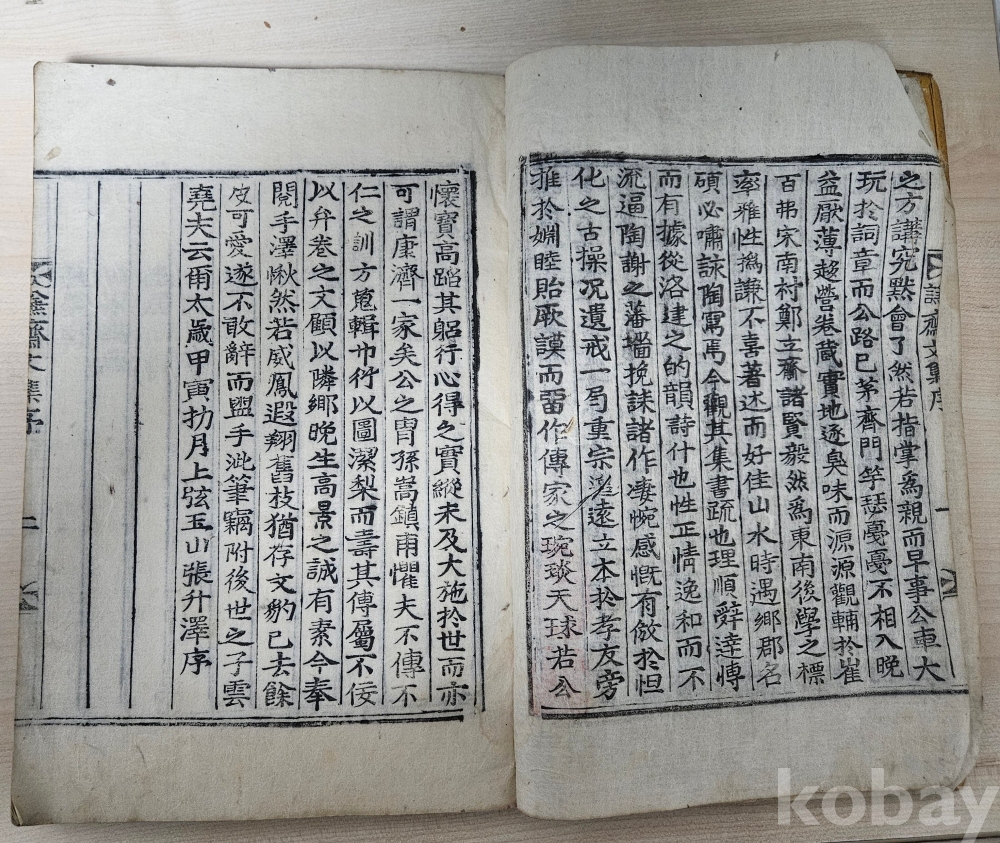 謙齋文集序
一
之方講究默會了然若指掌爲親而早事公車大
玩於詞章而公路已茅齊門竽瑟戞戞不相入晩
益厭薄趍營卷藏實地逐臭味而源源觀輔於崔
百弗宋南村鄭立齋諸賢毅然爲東南後學之標
率雅性撝謙不喜著述而好佳山水時遇鄕郡名
碩必嘯詠陶寫焉今觀其集書疏也理順辭達愽
而有據從洛建之的韻詩什也性正情逸和而不
流逼陶謝之藩墻挽誄諸作凄惋感慨有倣於怛
化之古操况遺戒一局重宗
遠立本於孝友旁
推於婣睦貽厥謨而留作傳家之琬琰天球若公
懷寶高蹈其躬行心得之實縱未及大施於世而亦
可謂康濟一家矣公之胄孫嵩鎭甫懼夫不傳不
仁之訓方蒐輯巾衍以圖潔梨而壽其傳屬不佞
以弁卷之文顧以隣鄕晩生高景之誠有素今奉
閱手澤愀然若威鳳遐翔舊枝猶存文豹已去餘
皮可愛遂不敢辭而盥手泚筆竊附後世之子雲
堯夫云爾太歲甲寅扐月上弦玉山張升澤序
齋文集序
二
kobay